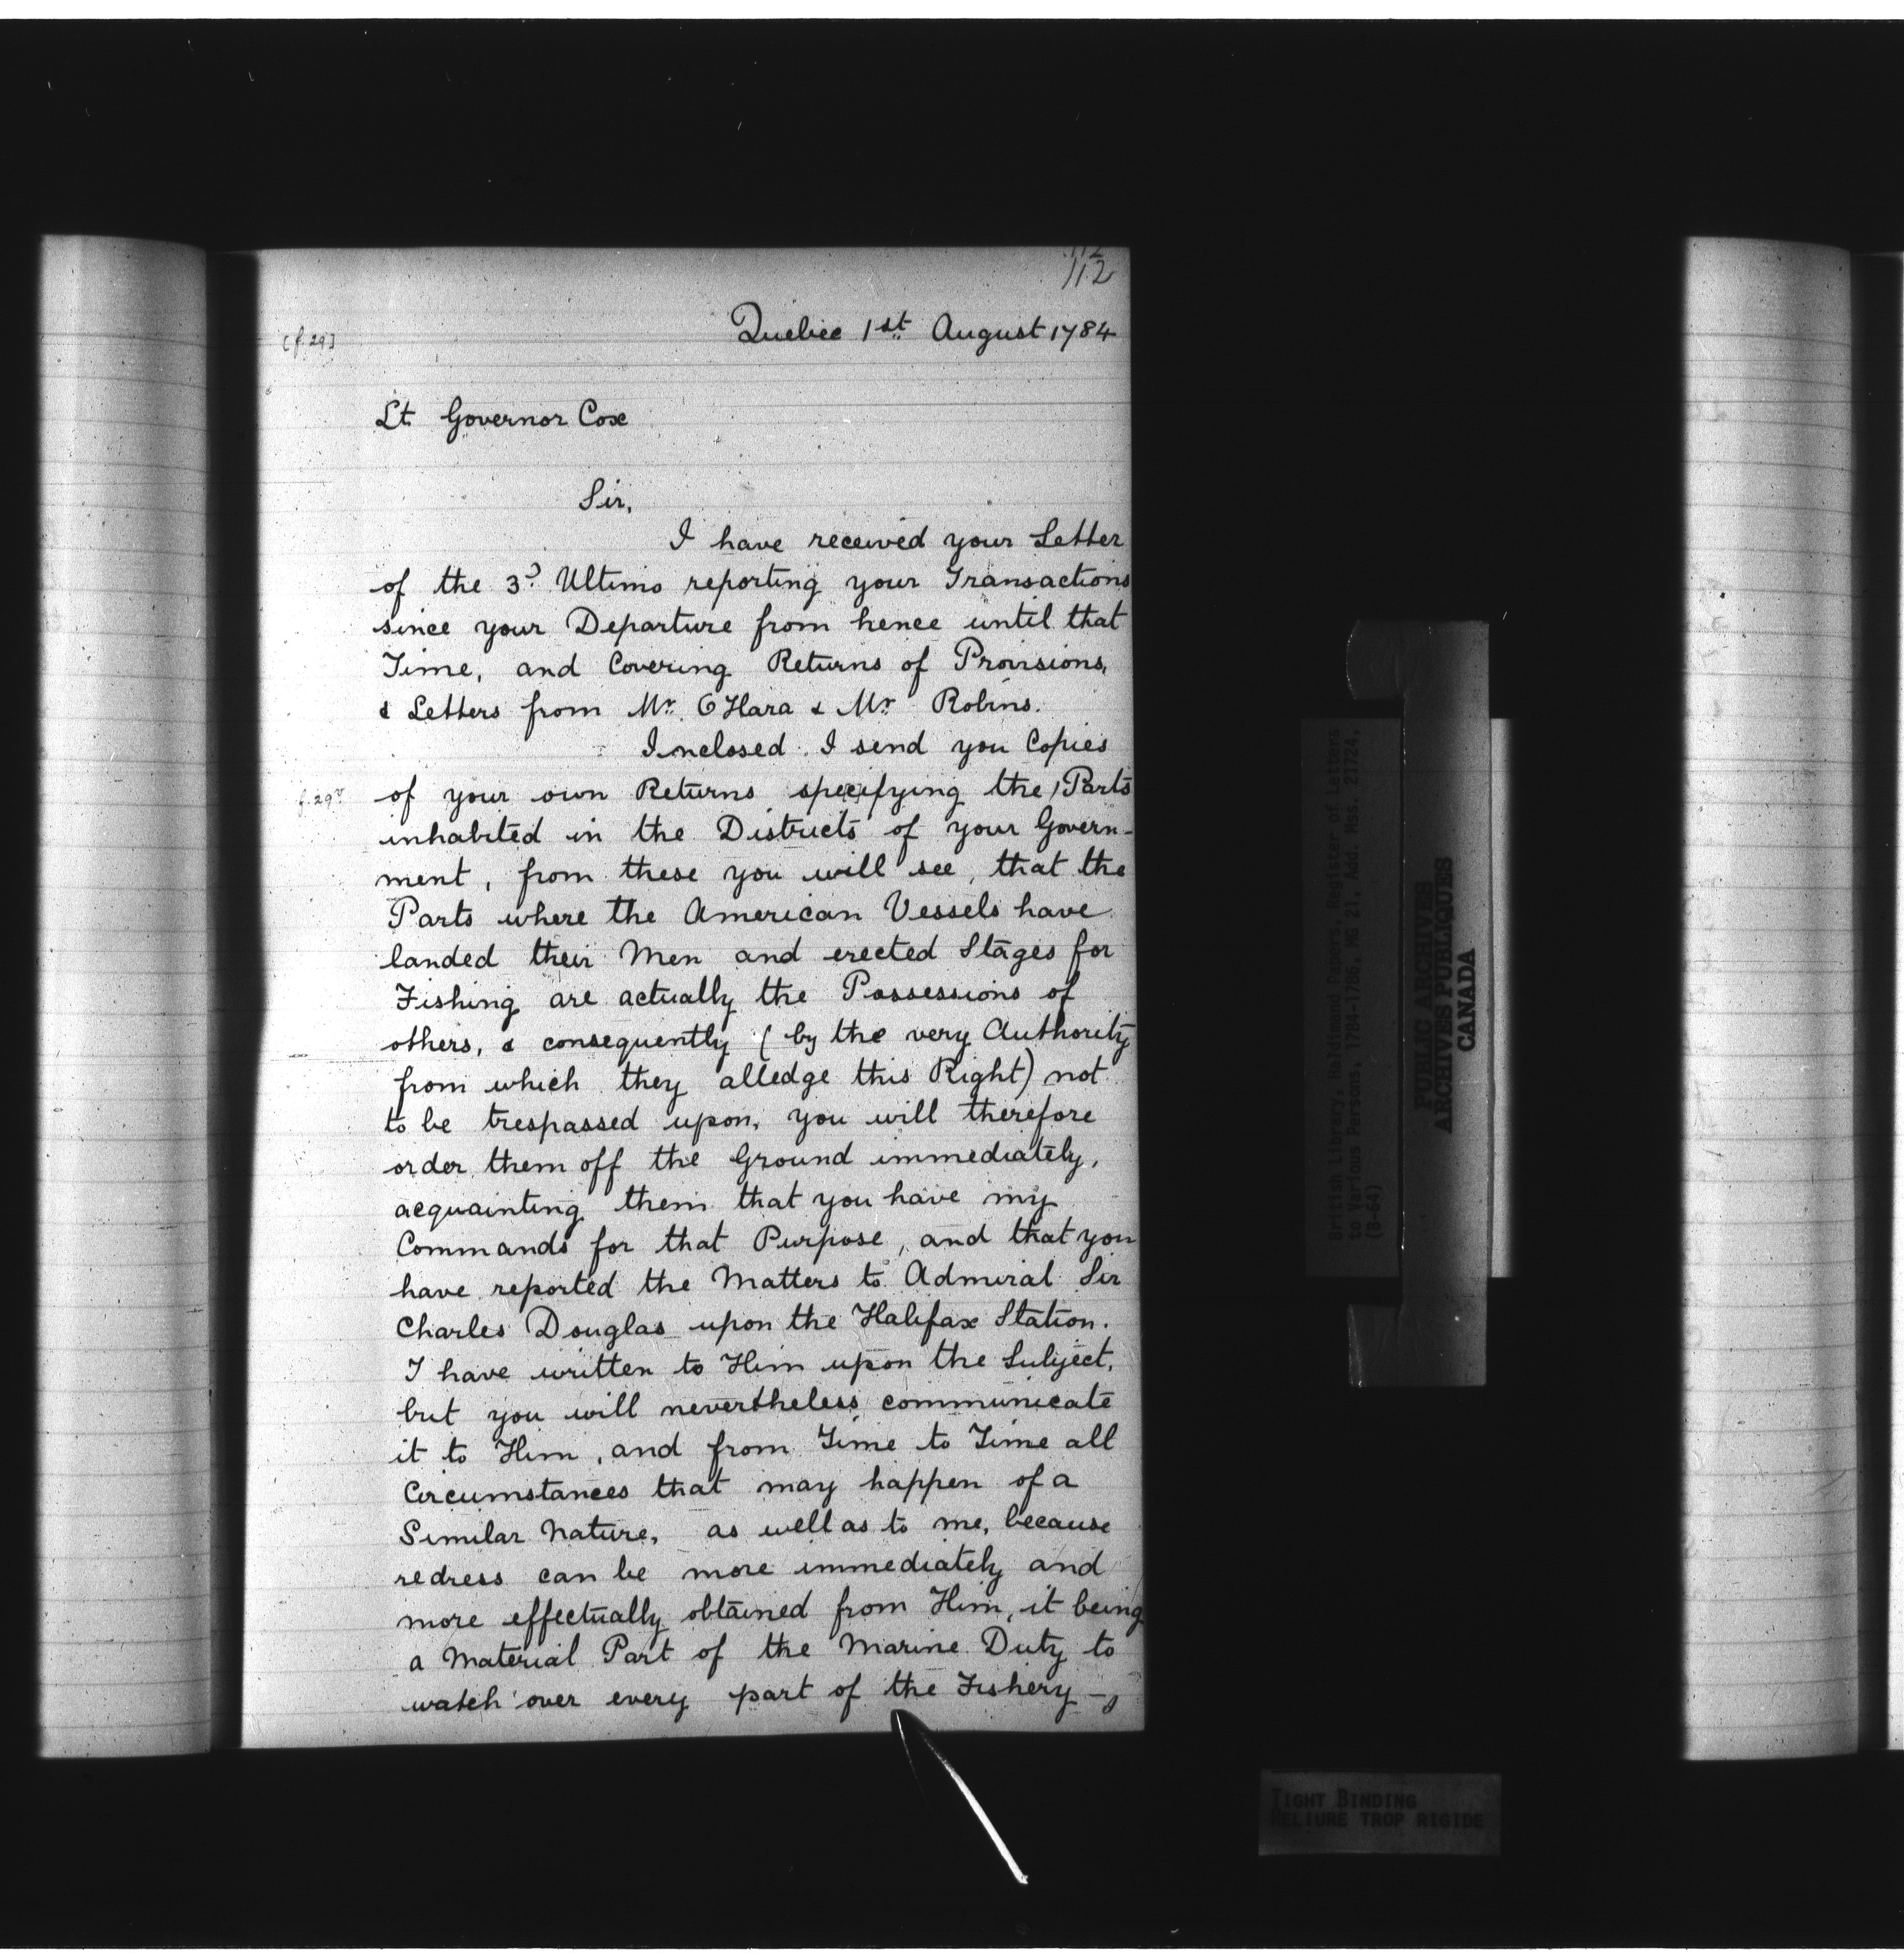 112
112
[f. 29]
Quebec 1st August 1784
Lt Governor Cox
Sir,
I have received your Letter
of the 3d Ultimo reporting your Transactions
since your Departure from hence until that
Time, and Covering Returns of Provisions,
& Letters from Mr. O'Hara & Mr. Robins.
Inclosed I send you Copies
f. 29v of your own Returns specifying the Parts
inhabited in the Districts of your Govern-
ment, from these you will see, that the
Parts where the American Vessels have
landed their Men and erected Stages for
Fishing are actually the Possessions of
others, & consequently (by the very Authority
from which they alledge this Right) not
to be trespassed upon, you will therefore
order them off the Ground immediately,
acquainting them that you have my
Commands for that Purpose, and that you
have reported the Matters to Admiral Sir
Charles Douglas upon the Halifax Station.
I have written to Him upon the Subject,
but you will nevertheless communicate
it to Him, and from Time to Time all
Circumstances that may happen of a
Similar Nature, as well as to me, because
redress can be more immediately and
more effectually obtained from Him, it being
a Material Part of the Marine Duty to
watch over every part of the Fishery –
British Library, Haldimand Papers, Register of Letters
to Various Persons, 1784-1786, MG 21, Add. Mss. 21724,
(B-64)
PUBLIC ARCHIVES
ARCHIVES PUBLIQUES
CANADA
TIGHT BINDING
RELIURE TROP RIGIDE